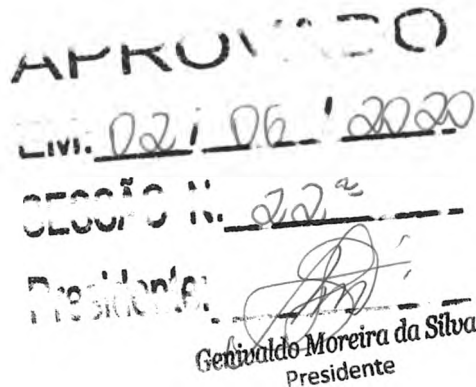 APROVADO
EM. 02 / 06 / 2020
SESSÃO N. 22ª
Presidente:
Genivaldo Moreira da Silva
Presidente